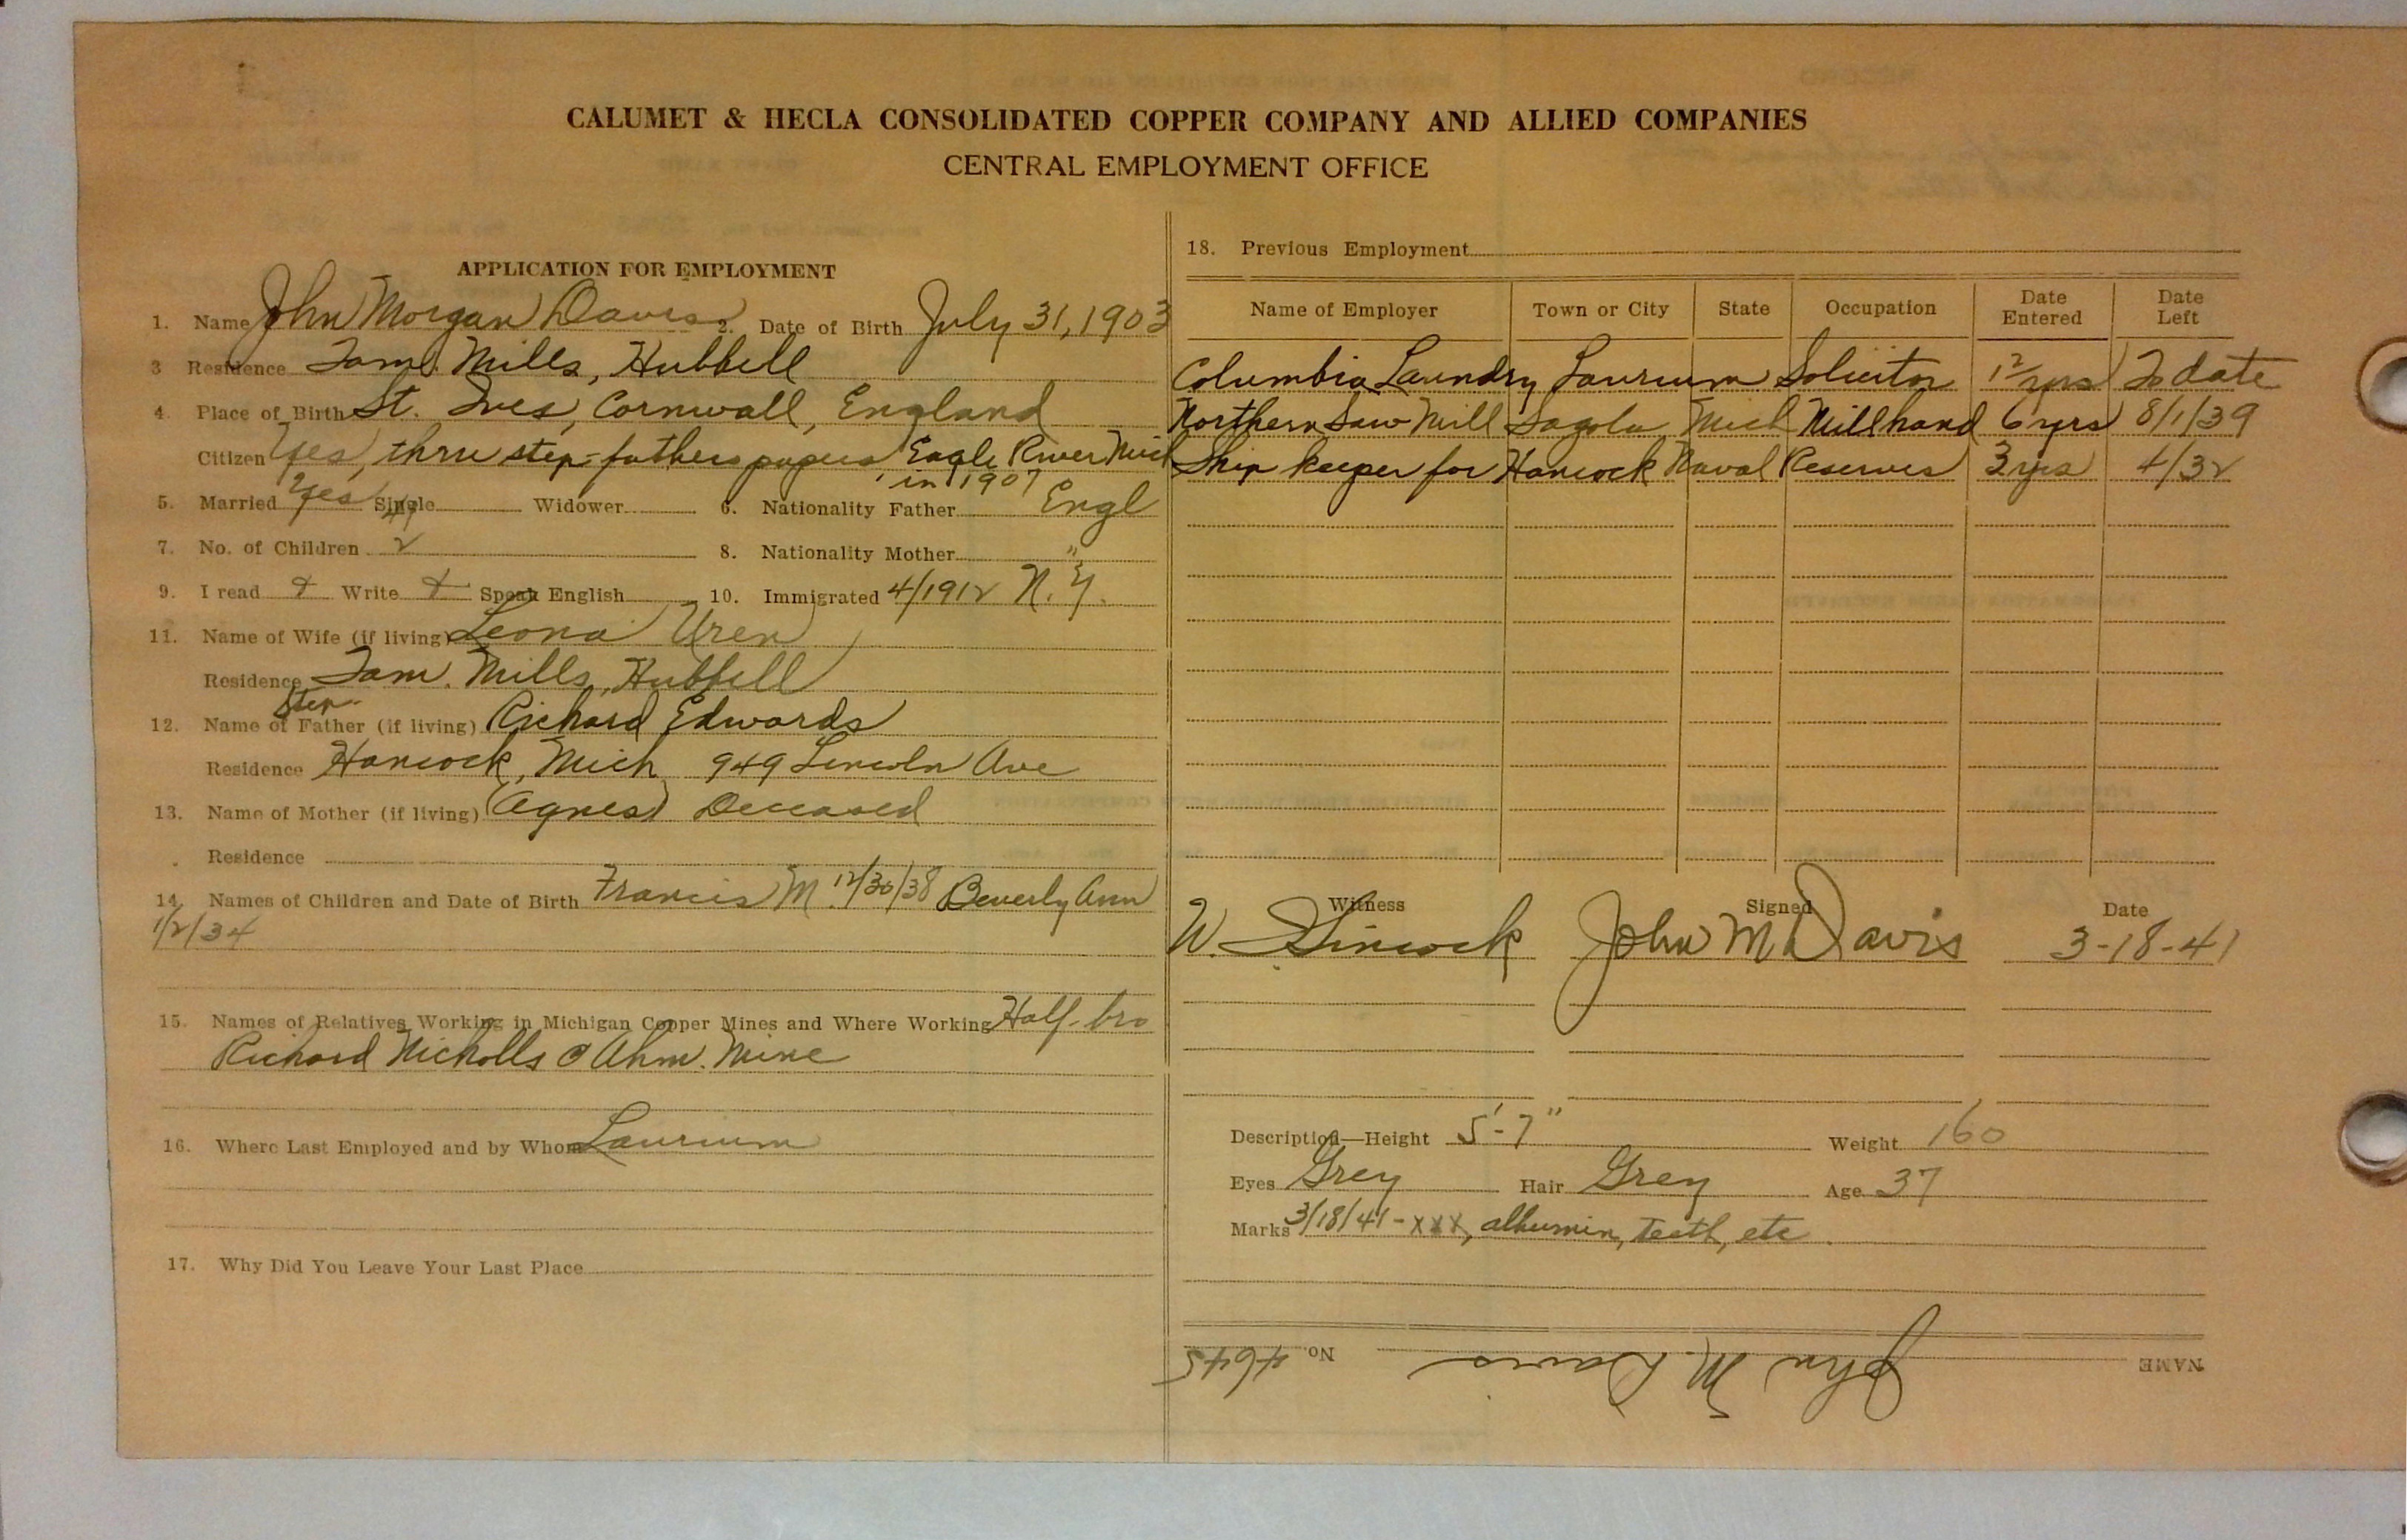 CALUMET & HECLA CONSOLIDATED COPPER COMPANY AND ALLIED COMPANIES
CENTRAL EMPLOYMENT OFFICE
APPLICATION FOR EMPLOYMENT
1. Name John Morgan Davis 2. Date of Birth July 31, 1903
3 Residence Tam. Mills, Hubbell
4. Place of Birth St. Ives, Cornwall, England
Citizen Yes, thru step-fathers papers Eagle River Mich
in 1907
5. Married Yes Single Widower 6. Nationality Father Engl
7. No. of Children 2 8. Nationality Mother "
9. I read & Write & Speak English 10. Immigrated 4/1912 N.Y.
11. Name of Wife (if living) Leona Uren
Residence Tam. Mills, Hubbell
Step-
12. Name of Father (if living) Richard Edwards
Residence Hancock, Mich 949 Lincoln Ave
13. Name of Mother (if living) (Agnes) Deceased
Residence
14. Names of Children and Date of Birth Francis M. 12/30/38 Beverly Ann
1/2/34
15. Names of Relatives Working in Michigan Copper Mines and Where Working Half-bro
Richard Nicholls @ Ahm. Mine
16. Where Last Employed and by Whom Laurium
17. Why Did You Leave Your Last Place
18. Previous Employment
Name of Employer Town or City State Occupation Date Entered Date Left
Columbia Laundry Laurium Solicitor 1 2/ yrs To date
Northern Saw Mill Sagola Mich Millhand 6 yrs 8/1/39
Ship keeper for Hancock Naval Reserves 3 yrs 4/32
Witness Signed Date
W. John M Davis 3-18-41
Description—Height 5'-7" Weight 160
Eyes Grey Hair Grey Age 37
Marks 3/18/41 - xxx, albumin, Teeth, etc.
NAME John M. Davis No. 4645